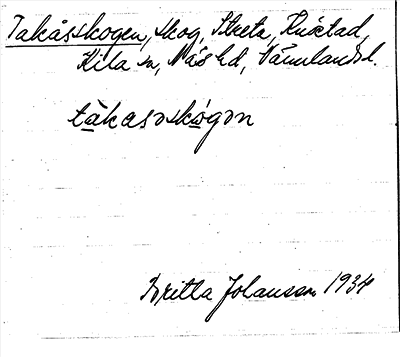 Takåsskogen, skog, Streta, Knöstad,
Kila sn, Näs hd, Värmland.
tàkasəskó̀gən
Britta Johansson 1934